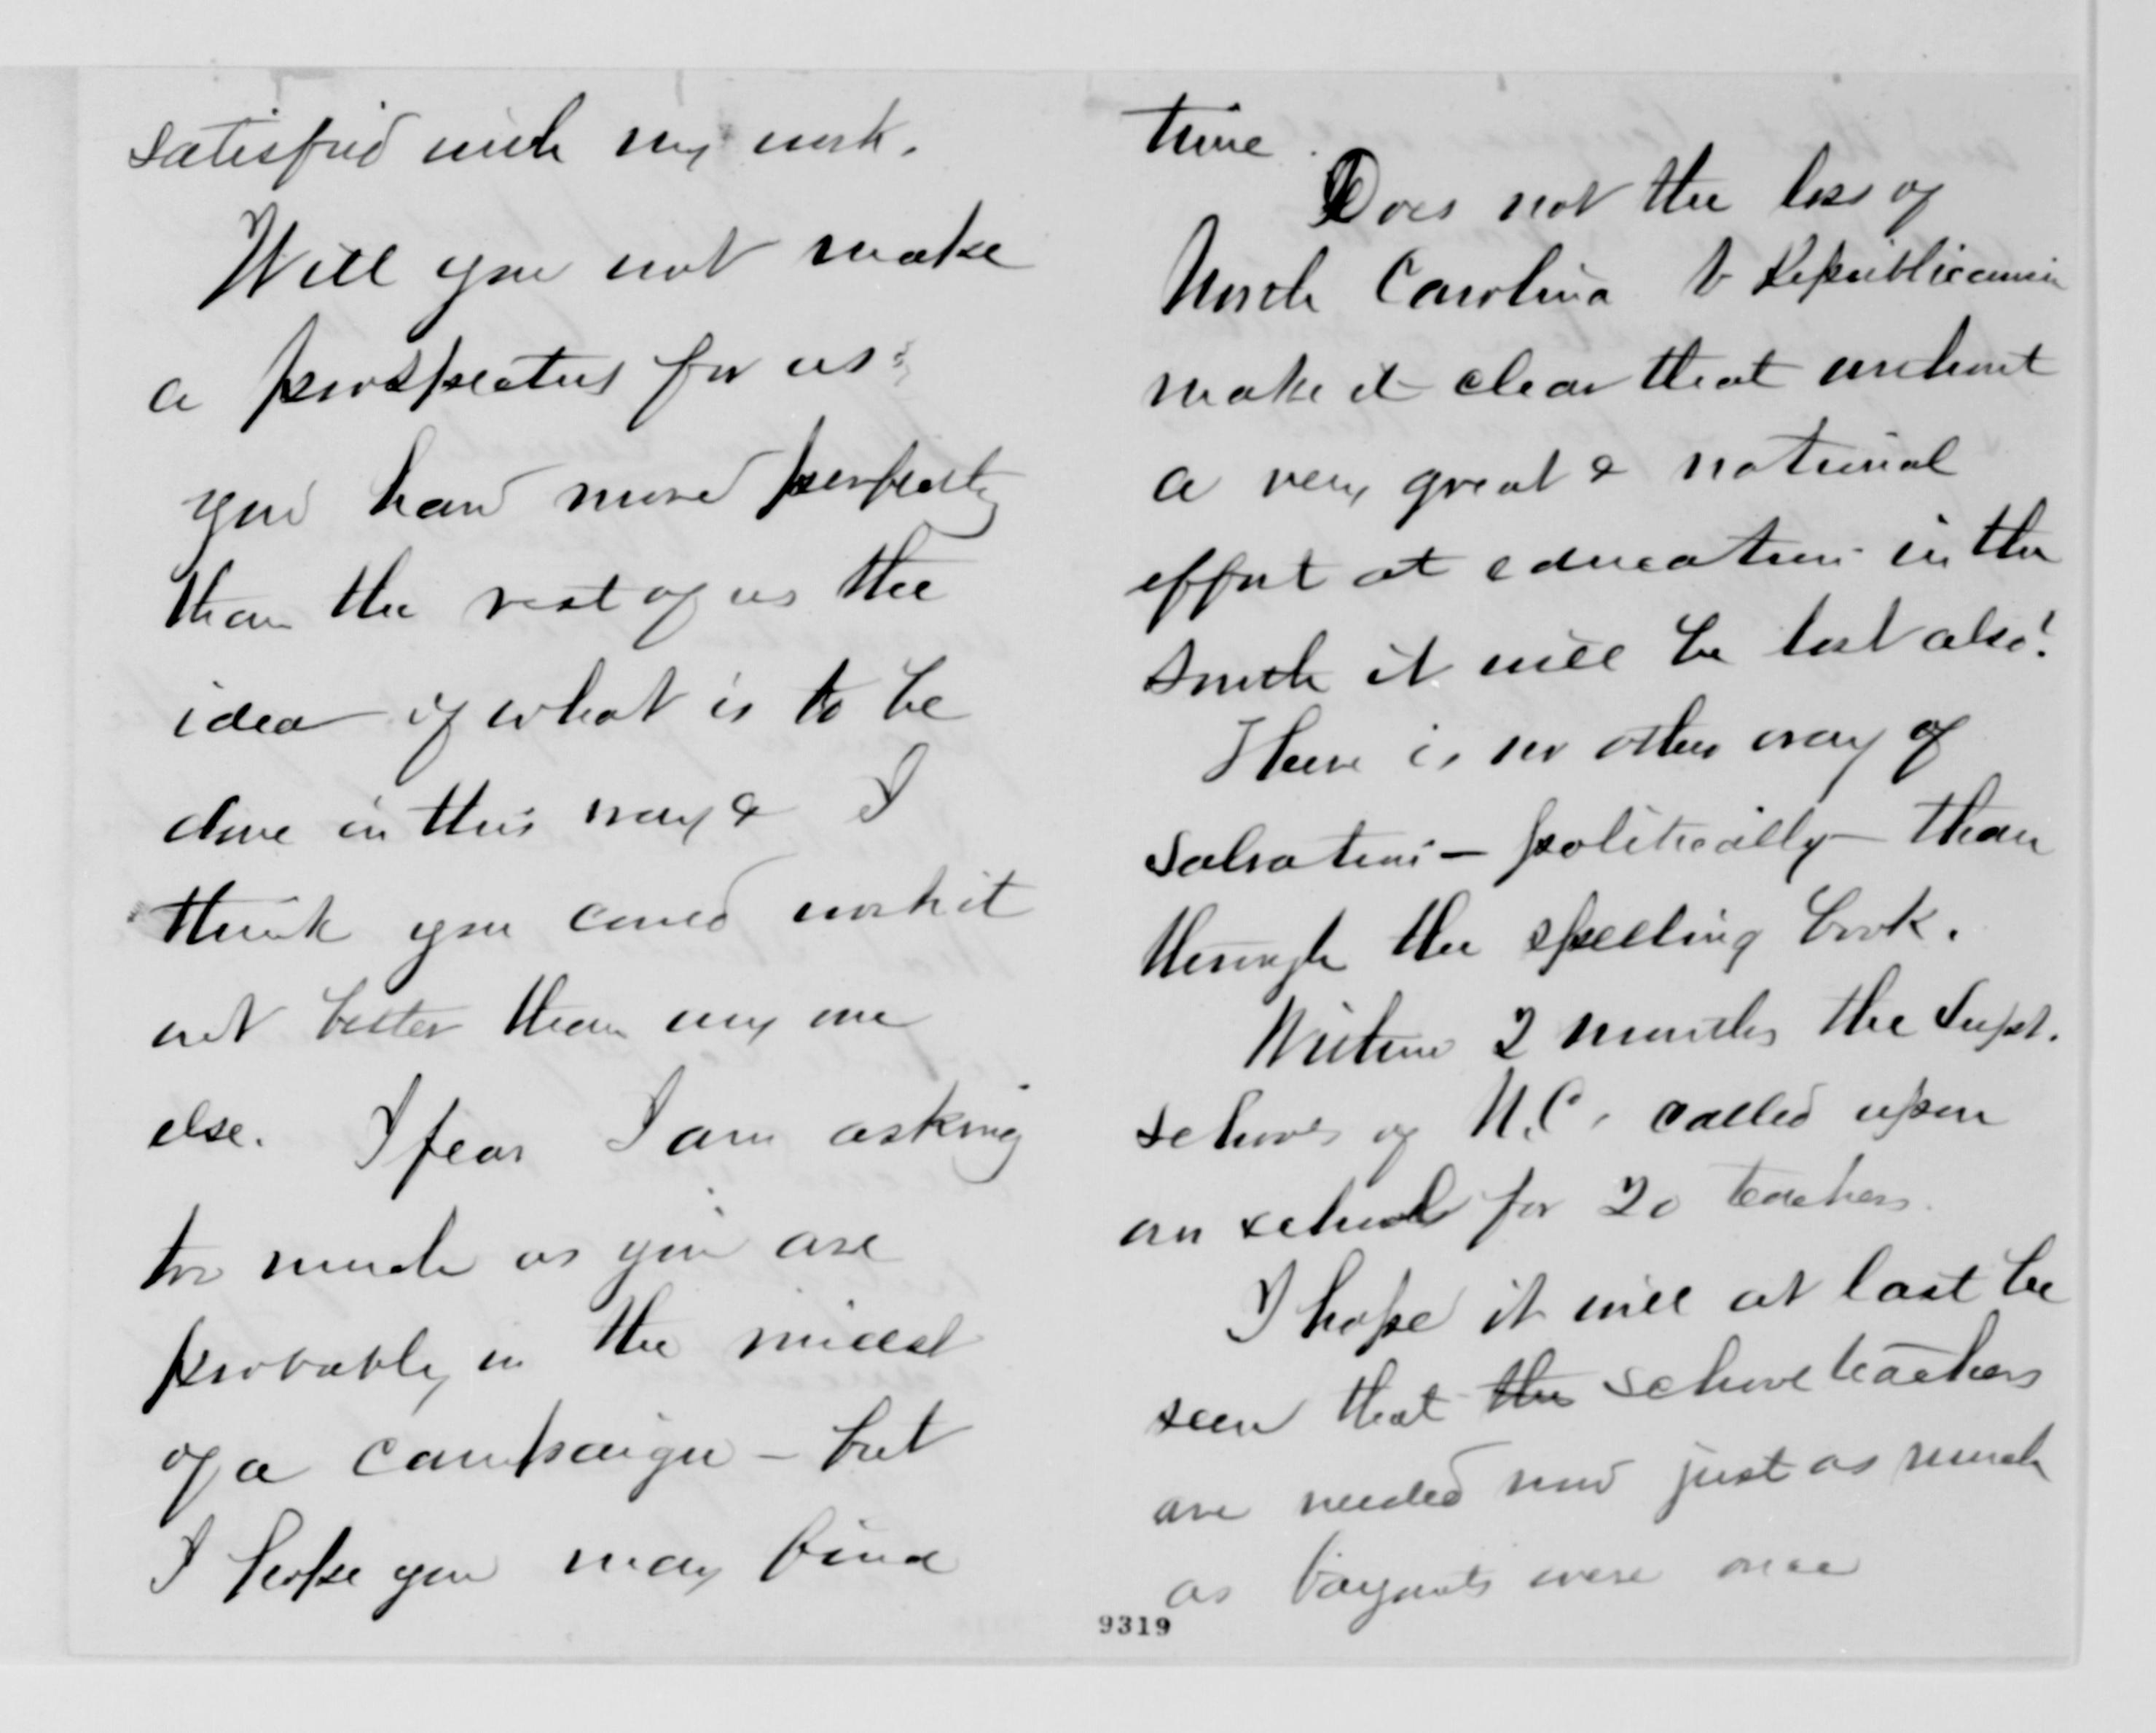 satisfied with my work.
Will you not make
a prospectus for us?
you have more perfectly
than the rest of us the
idea of what is to be
done in this way & I
think you could work it
out better than any one
else. I fear I am asking
too much as you are
probably in the midst
of a campaign – but
I hope you may find
time.
Does not the loss of
North Carolina to Republicanism
make it clear that without
a very great & national
effort at education in the
South it will be lost also!
There is no other way of
salvation – politically – than
through the spelling book.
Within 2 months the Supt.
schools of N.C. called upon
our school for 20 teachers.
I hope it will at last be
seen that the school teachers
are needed now just as much
as bayonets were once
9319